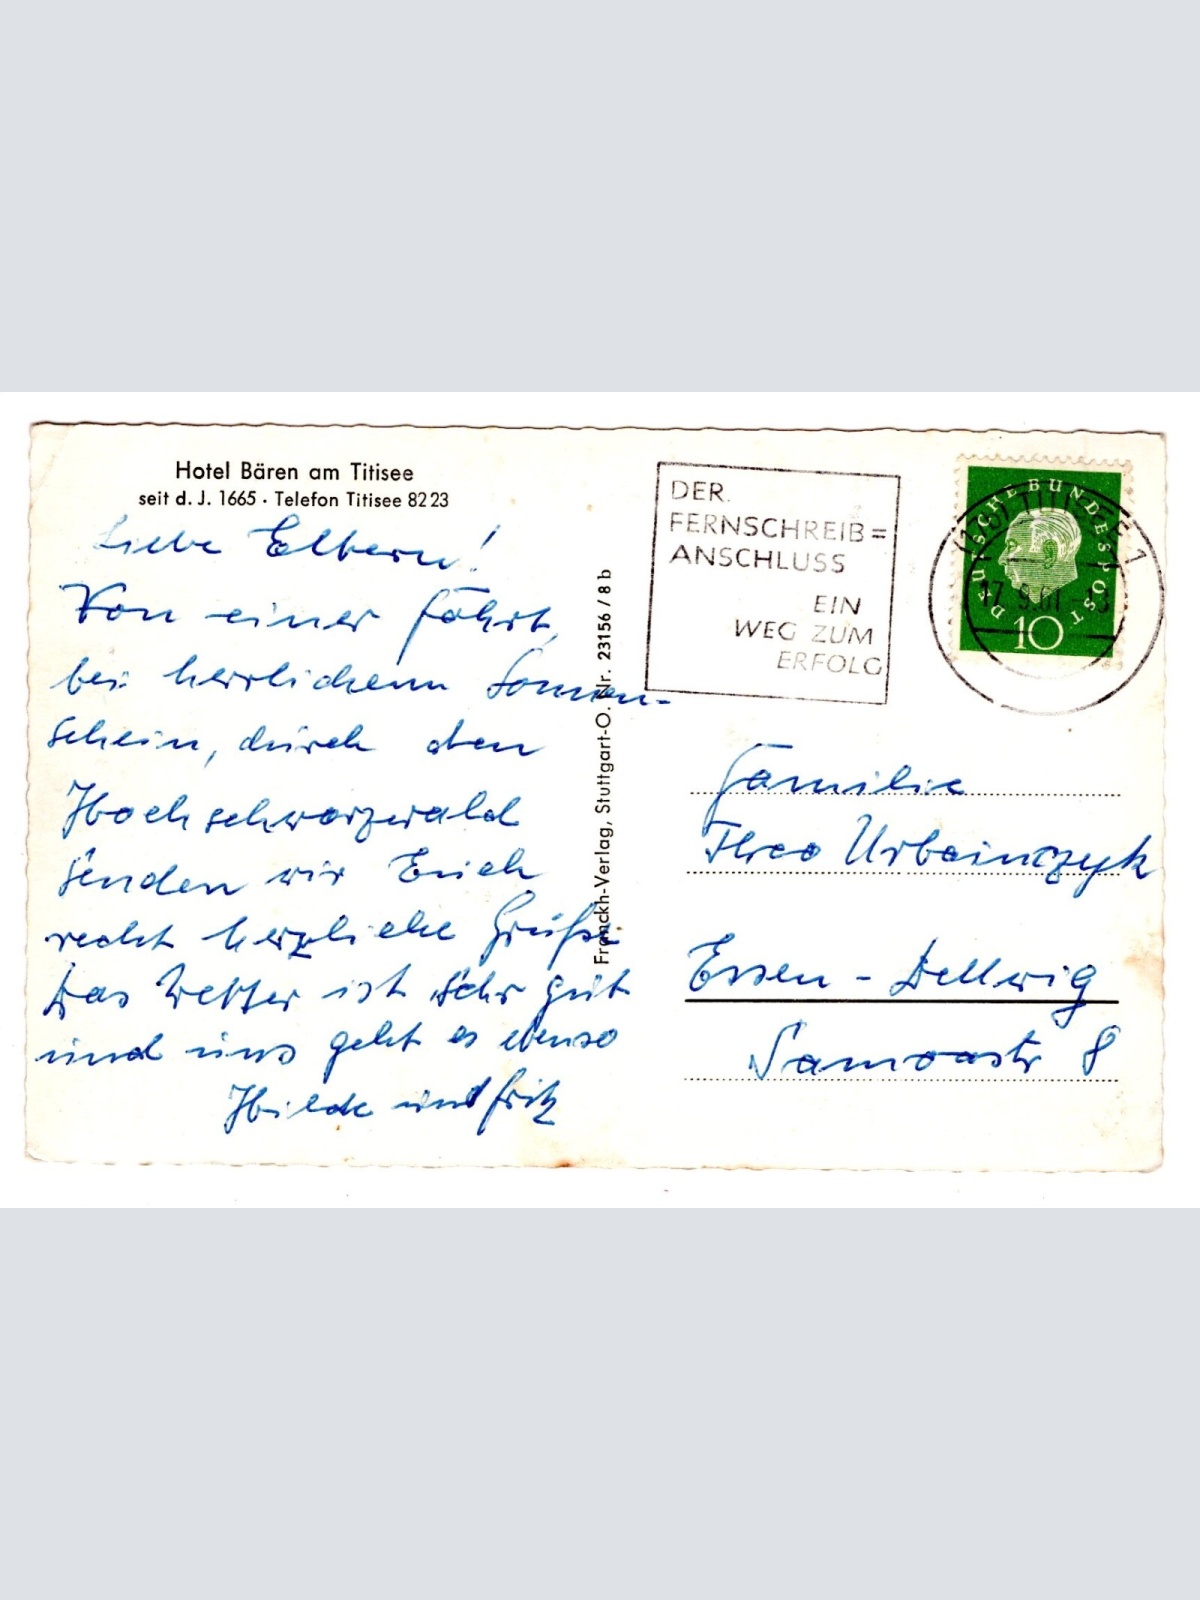 Hotel Bären am Titisee
seit d. J. 1665 · Telefon Titisee 82 23
Liebe Eltern!
Von einer Fahrt,
bei herrlichem Sonnen-
schein, durch den
Hochschwarzwald
senden wir Euch
recht herzliche Grüße.
Das Wetter ist sehr gut
und uns geht es ebenso
Hilde und Fritz
Franckh-Verlag, Stuttgart-O. Nr. 23156 / 8 b
DER
FERNSCHREIB=
ANSCHLUSS
EIN
WEG ZUM
ERFOLG
DEUTSCHE BUNDESPOST
10
TITISEE 1
17.9.61-13
Familie
Theo Urbainczyk
Essen - Dellwig
Samoastr 8